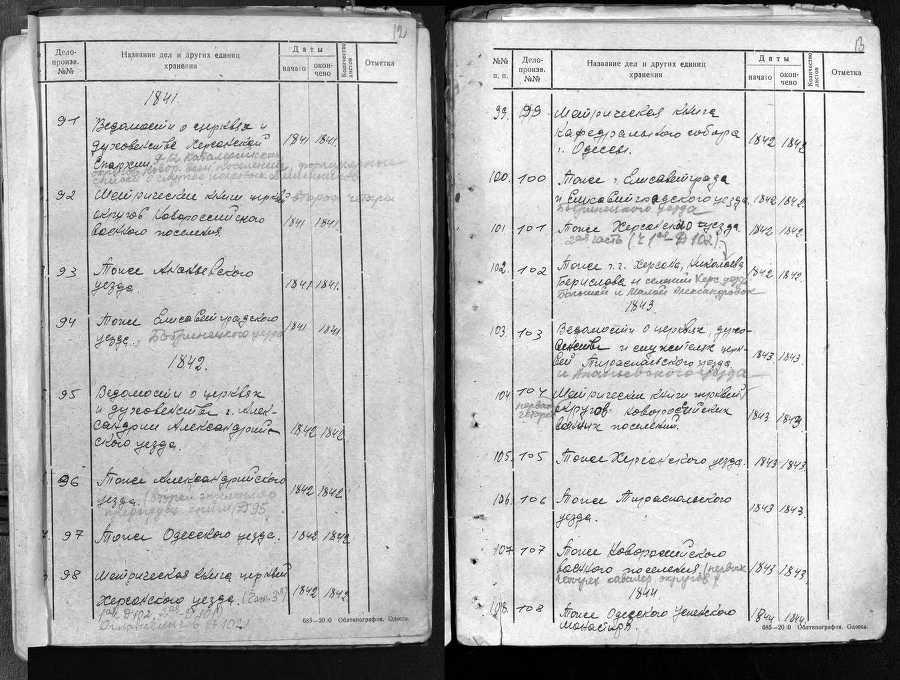 12
Дело-
произв.
№№
Название дел и других единиц
хранения
Даты
начато
окон-
чено
Количество
листов
Отметка
1841
91 Ведомости о церквях и
духовенстве Херсонской 1841 1841
Епархии.
92 Метрические книги церквей
округов Новороссийского
военного поселения 1841 1841.
93 Тоже Ананьевского
уезда 1841 1841.
94 Тоже Елисаветградского 1841 1841
уезда. Бобринецкого уезда
1842.
95 Ведомости о церквях
и духовенстве г. Алек-
сандрии Александрий- 1842 1842
ского уезда.
96 Тоже Александрийского 1842 1842
уезда. (второй экземпляр
№95.
97 Тоже Одесского уезда. 1842 1842
98 Метрическая книга церквей
Херсонского уезда. 1842 1842
685—20 0 Облтипография, Одесса.
13
№№
п. п.
Дело-
произв.
№№
Название дел и других единиц
хранения
Даты
начато
окон-
чено
Количество
листов
Отметка
99. 99 Метрическая книга
Кафедрального собора
г. Одессы. 1842 1842
100. 100 Тоже г. Елисаветграда
и Елисаветградского уезда. 1842 1842
Бобринецкого уезда
101. 101 Тоже Херсонского уезда 1842 1842.
102. 102 Тоже г.г. Херсона, Николаева 1842 1842.
Берислава и селений Херс.
Большой и Малой Александровок
1843
103. 103 Ведомости о церквях духо-
венстве и служителях церк-
вей Тираспольского уезда 1843 1843.
и Ананьевского уезда
104 104 Метрические книги церквей
округов Новороссийских 1843 1843.
военных поселений.
105. 105 Тоже Херсонского уезда. 1843 1843.
106. 106 Тоже Тираспольского 1843 1843.
уезда.
107 107 Тоже Новороссийского
военного поселения (первых 1843 1843.
четырех округов)
1844
108. 108 Тоже Одесского Успенского 1844 1844.
монастыря.
685—20 0 Облтипография, Одесса.